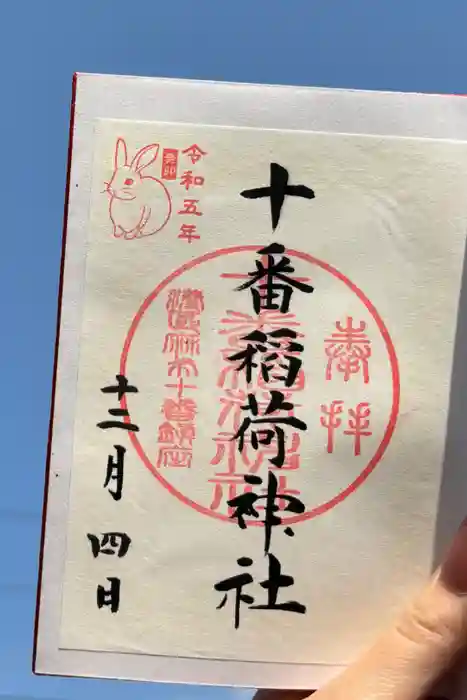 奉拝
十番稲荷神社
令和五年
癸卯
十二月四日
港區麻布十番鎮座
十番稲荷神社